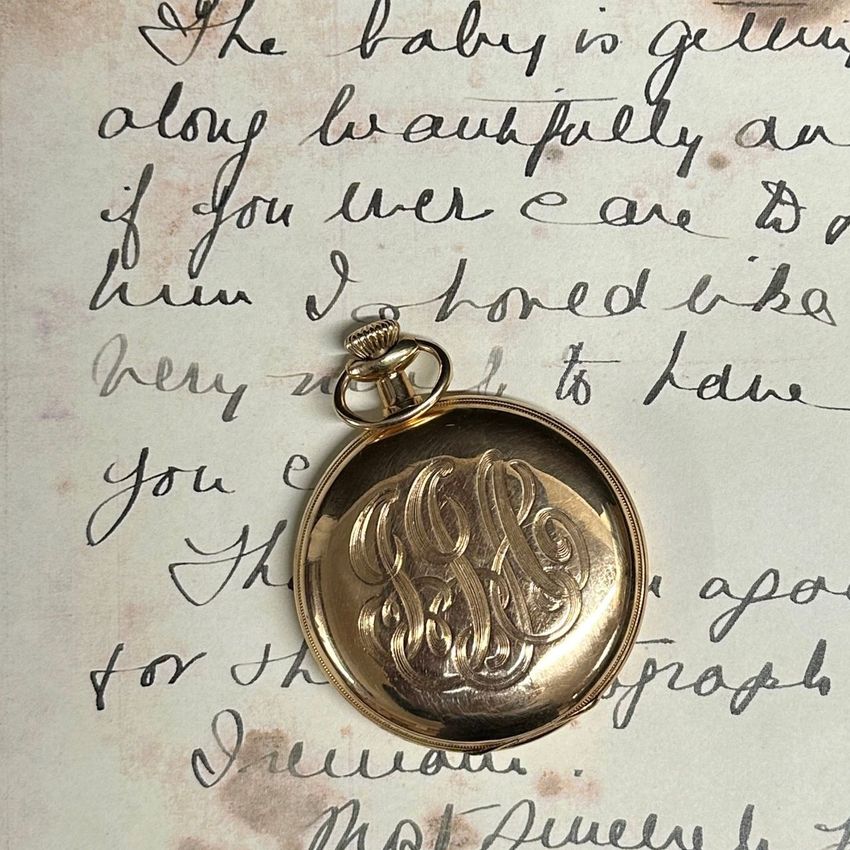 The baby is getting
along beautifully an
if you ever care to
him I should like
very to have
you c
Th ago
for th ograph
I remain.
Most Sincerely